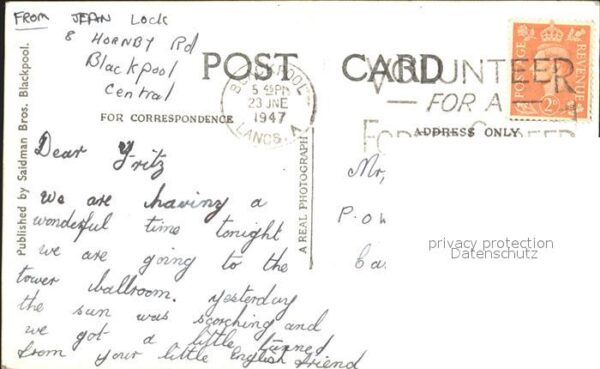 FROM JEAN Lock
8 HORNBY Rd
Blackpool
Central
POST CARD
BLACKPOOL
5 45PM
23 JNE
1947
LANCS. A
VOLUNTEER
— FOR A —
POSTAGE REVENUE
2D
FOR CORRESPONDENCE
ADDRESS ONLY
Published by Saidman Bros. Blackpool.
A REAL PHOTOGRAPH
Dear Fritz
We are having a
wonderful time tonight
we are going to the
tower ballroom. yesterday
the sun was scorching and
we got a little tanned
from your little English friend
Mr,
P.O.W
Ca
privacy protection
Datenschutz